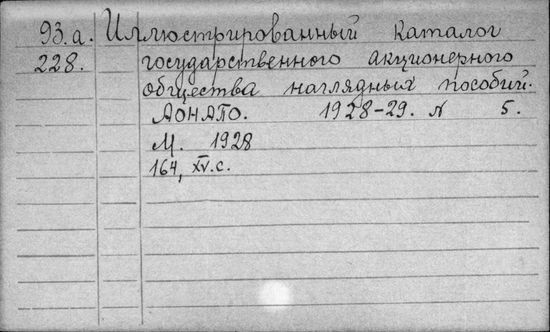 93.a. Иллюстрированный каталог
228. государственного акционерного
общества наглядных пособий.
АОНАПО. 1928-29. N 5.
М. 1928
164, XV.с.